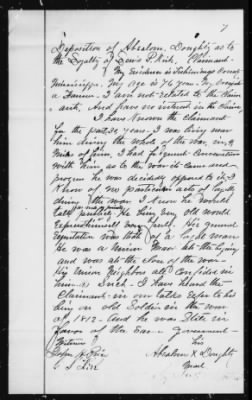 7
Deposition of Abraham Doughty as to
the Loyalty of Lewis P. Kirk, Claimant.
My Residence is Tishomingo County
Mississippi. My age is 76 year. My Occupation
a Farmer. I am not related to the Claim
ant, And have no interest in the Claim
I have Known the Claimant
for the past 35 year. I was living near
him during the whole of the war, in
miles of him, I had frequent Conversation
with him, as to the war its Cause and
progress he was decidedly opposed to it, I
Know of no particular acts of loyalty
during the war I Know he would
talk publicly He being very old would
Express himself very freely. His general
reputation was that of a loyal man
He was a Union Man at the beginning
and was at the Close of the war
his Union Neighbors all Confided in
him as Such. I have heard the
Claimant in our talks refer to his
being an old Soldier in the war
of 1812. And he was State in
favor of the government
Witness
his
Abraham X Doughty
mark